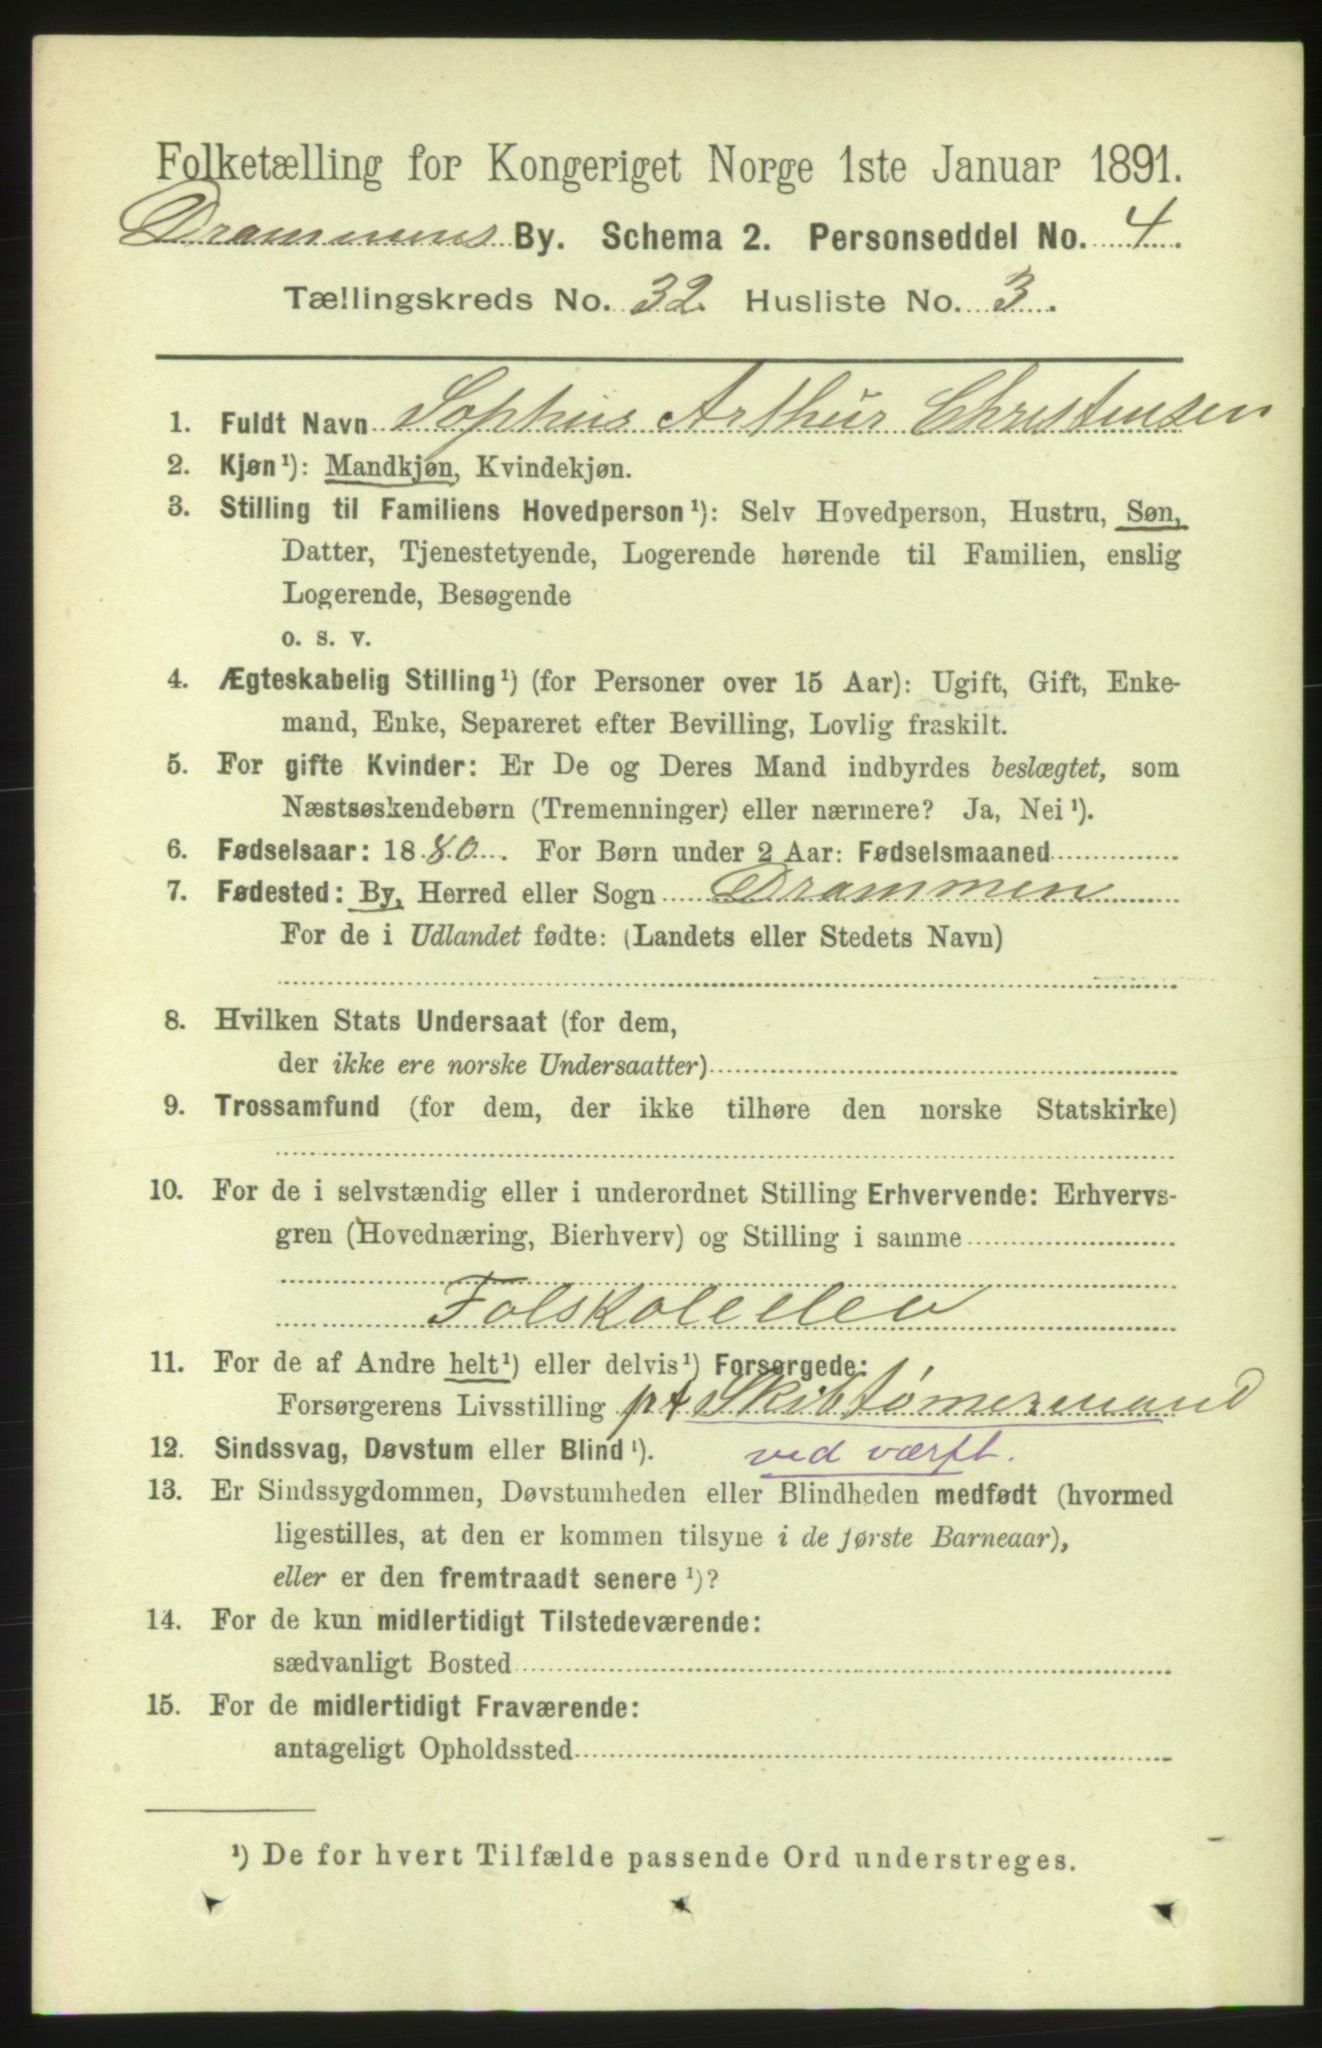 Folketælling for Kongeriget Norge 1ste Januar 1891.
Drammens By. Schema 2. Personseddel No. 4.
Tællingskreds No. 32 Husliste No. 3.
1. Fuldt Navn Sophus Arthur Christensen
2. Kjøn¹): Mandkjøn, Kvindekjøn.
3. Stilling til Familiens Hovedperson¹): Selv Hovedperson, Hustru, Søn,
Datter, Tjenestetyende, Logerende hørende til Familien, enslig
Logerende, Besøgende
o. s. v.
4. Ægteskabelig Stilling¹) (for Personer over 15 Aar): Ugift, Gift, Enke-
mand, Enke, Separeret efter Bevilling, Lovlig fraskilt.
5. For gifte Kvinder: Er De og Deres Mand indbyrdes beslægtet, som
Næstsøskendebørn (Tremenninger) eller nærmere? Ja, Nei¹).
6. Fødselsaar: 1880. For Børn under 2 Aar: Fødselsmaaned
7. Fødested: By, Herred eller Sogn Drammen
For de i Udlandet fødte: (Landets eller Stedets Navn)
8. Hvilken Stats Undersaat (for dem,
der ikke ere norske Undersaatter)
9. Trossamfund (for dem, der ikke tilhøre den norske Statskirke)
10. For de i selvstændig eller i underordnet Stilling Erhvervende: Erhvervs-
gren (Hovednæring, Bierhverv) og Stilling i samme
Folskoleelev
11. For de af Andre helt¹) eller delvis¹) Forsørgede:
Forsørgerens Livsstilling pt Skibtømermand
12. Sindssvag, Døvstum eller Blind¹). ved værft.
13. Er Sindssygdommen, Døvstumheden eller Blindheden medfødt (hvormed
ligestilles, at den er kommen tilsyne i de første Barneaar),
eller er den fremtraadt senere¹)?
14. For de kun midlertidigt Tilstedeværende:
sædvanligt Bosted
15. For de midlertidigt Fraværende:
antageligt Opholdssted
¹) De for hvert Tilfælde passende Ord understreges.